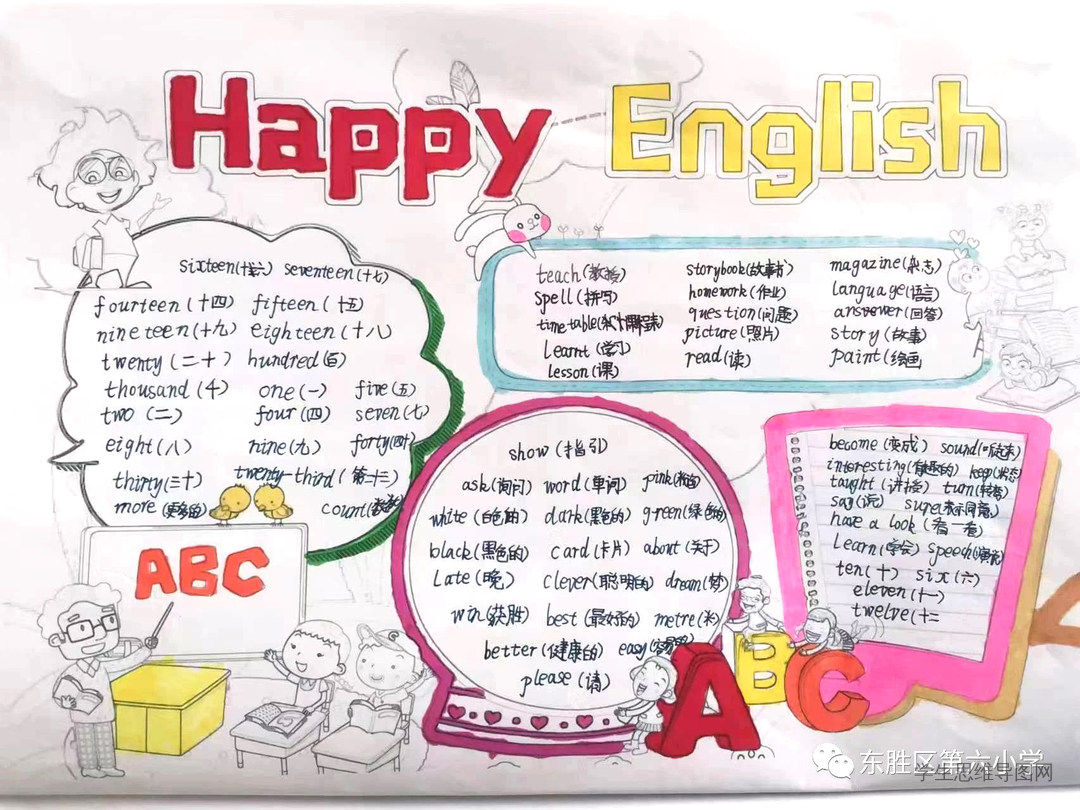 Happy English
sixteen(十六) seventeen(十七)
fourteen(十四) fifteen(十五)
nineteen(十九) eighteen(十八)
twenty(二十) hundred(百)
thousand(千) one(一) five(五)
two(二) four(四) seven(七)
eight(八) nine(九) forty(四十)
thirty(三十) twenty-third(第二十三)
more count
ABC
teach(教授)
spell(拼写)
timetable
learnt(学习)
lesson(课)
storybook(故事书)
homework(作业)
question(问题)
picture(照片)
read(读)
magazine(杂志)
language(语言)
answer(回答)
story(故事)
paint(绘画
show(指引)
ask(询问) word(单词) pink
white(白色的) dark(黑色的) green(绿色的)
black(黑色的) card(卡片) about(关于)
Late(晚) clever(聪明的) dream(梦)
win(获胜) best(最好的) metre(米)
better(健康的) easy
please(请)
become(变成) sound
interesting(有趣的) keep
taught(讲授) turn
say(说)
have a look(看一看)
Learn(学会) speech
ten(十) six(六)
eleven(十一)
twelve(十二
ABC
东胜区第六小学
学生思维导图网